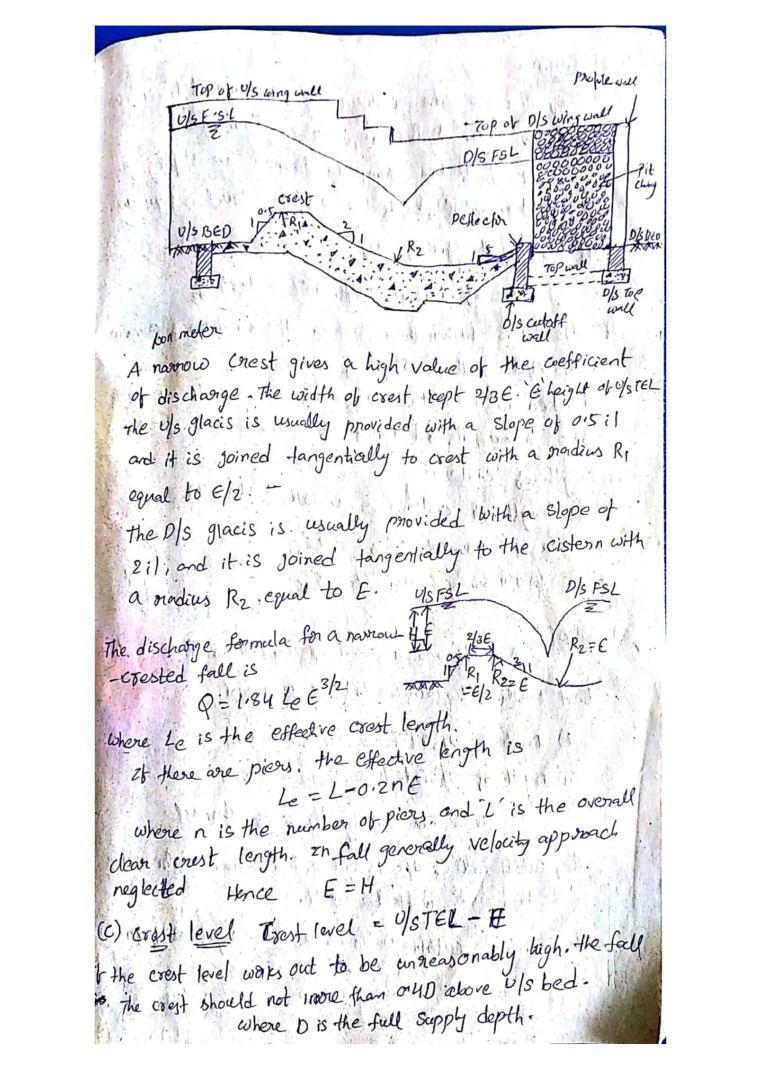 Top of U/S wing wall
profile wall
U/S F.S.L
Top of D/S wing wall
D/S FSL
Pit
ching
crest
0.5
1
R1
2
1
Deflector
U/S BED
R2
1
5
D/S BED
Top wall
D/S Toe
wall
D/S cutoff
wall
A narrow crest gives a high value of the coefficient
of discharge. The width of crest kept 2/3E. E height of U/S TEL
The U/s glacis is usually provided with a slope of 0.5:1
and it is joined tangentially to crest with a radius R1
equal to E/2.
the D/S glacis is usually provided with a slope of
2:1, and it is joined tangentially to the cistern with
a radius R2 equal to E.
U/S FSL
D/S FSL
H
E
2/3E
R2=E
0.5
1
2
1
R1
=E/2
R2=E
The discharge formula for a narrow
-crested fall is
Q = 1.84 Le E^3/2
where Le is the effective crest length.
If there are piers, the effective length is
Le = L-0.2nE
where n is the number of piers, and 'L' is the overall
clear crest length. In fall generally velocity approach
neglected Hence E = H
(C) crest level Crest level = U/S TEL - E
the crest level works out to be unreasonably high. the fall
The crest should not more than 0.4D above U/s bed.
where D is the full supply depth.